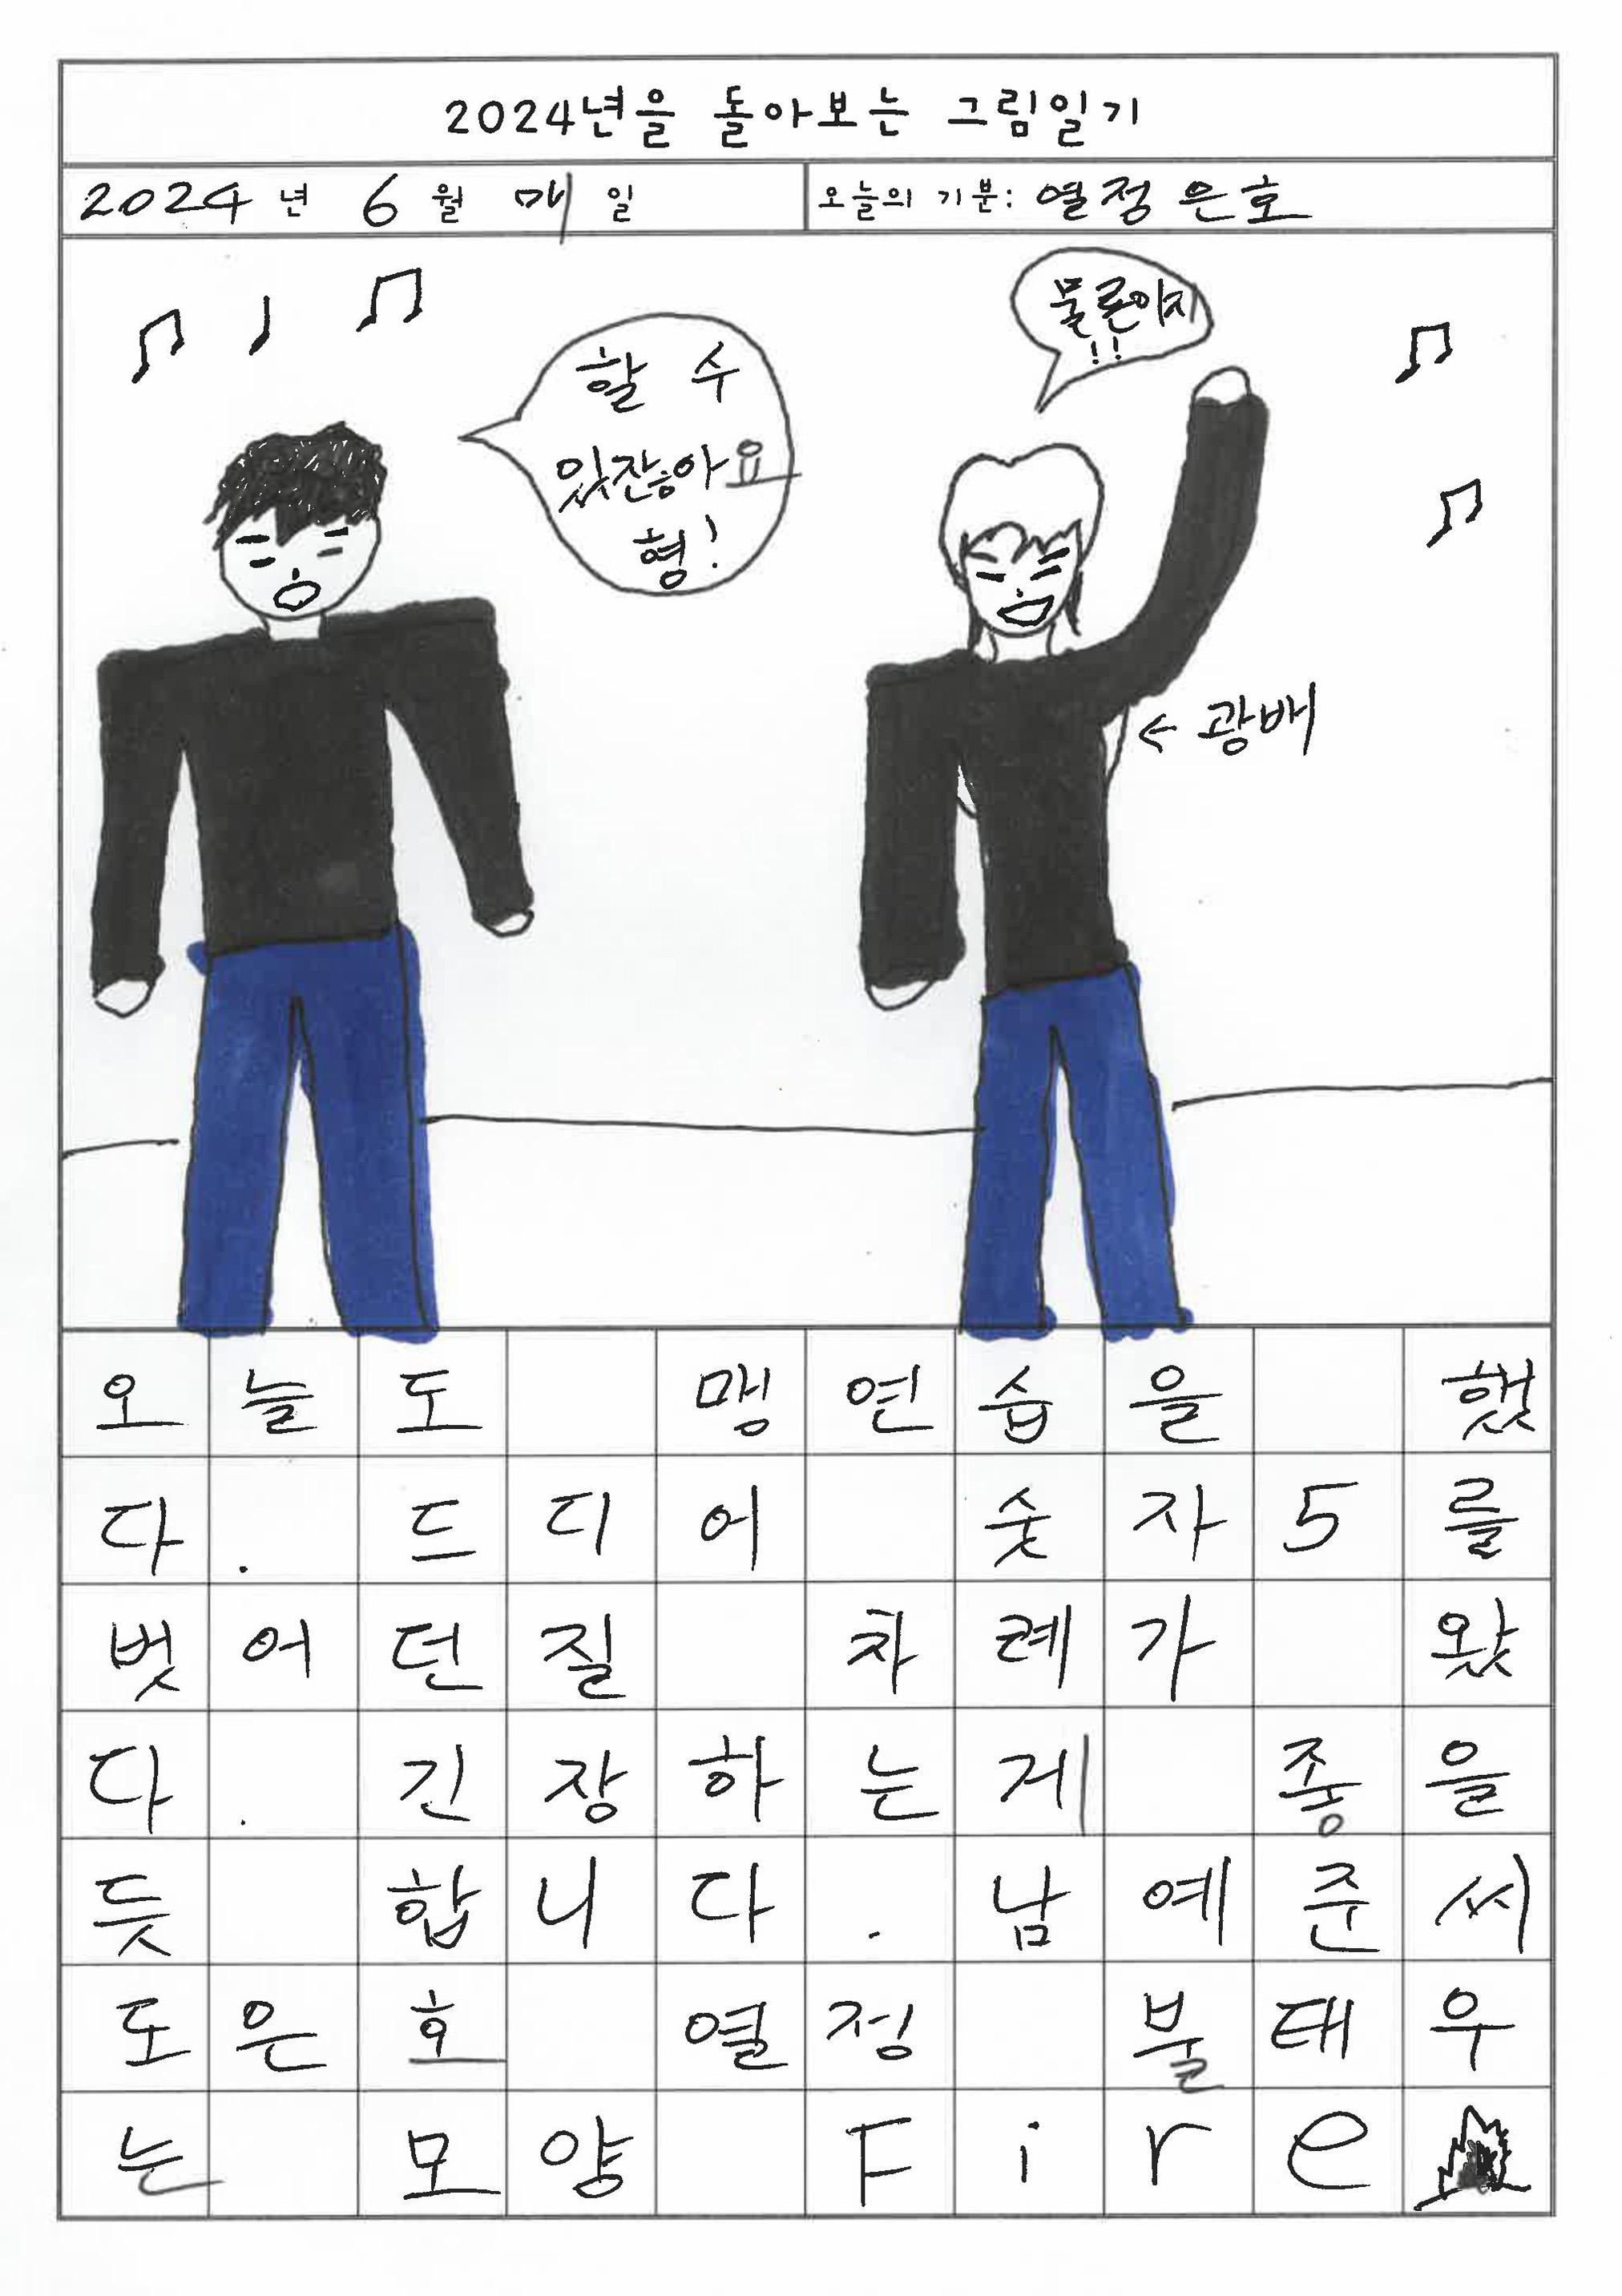 2024년을 돌아보는 그림일기
2024 년 6 월 매 일 오늘의 기분: 열정 은호
할 수
있잖아요
형!
물론이지
!!
← 광배
오늘도 맹연습을 했
다. 드디어 숫자5를
벗어던질 차례가 왔
다. 긴장하는게 좋을
듯 합니다. 남예준씨
도은호 열정 불태우
는 모양 Fire